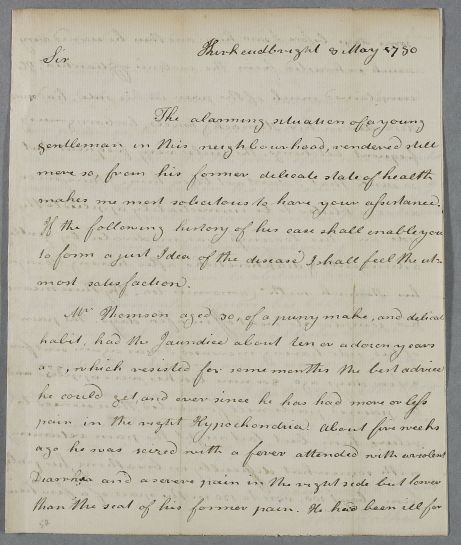 Kirkcudbright 8 May 1780
Sir
The alarming situation of a young
gentleman in this neighbourhood, rendered still
more so, from his former delicate state of health
makes me most solicitous to have your assistance.
If the following history of his case shall enable you
to form a just Idea of the disease I shall feel the ut-
most satisfaction.
Mr Thomson aged 30, of a puny make, and delicate
habit, had the Jaundice about ten or a dozen years
ago, which resisted for some months the best advice
he could get, and ever since he has had more or less
pain in the right Hypochondria. About five weeks
ago he was seized with a fever attended with a violent
Diarrhea and a severe pain in the right side but lower
than the seat of his former pain. He had been ill for